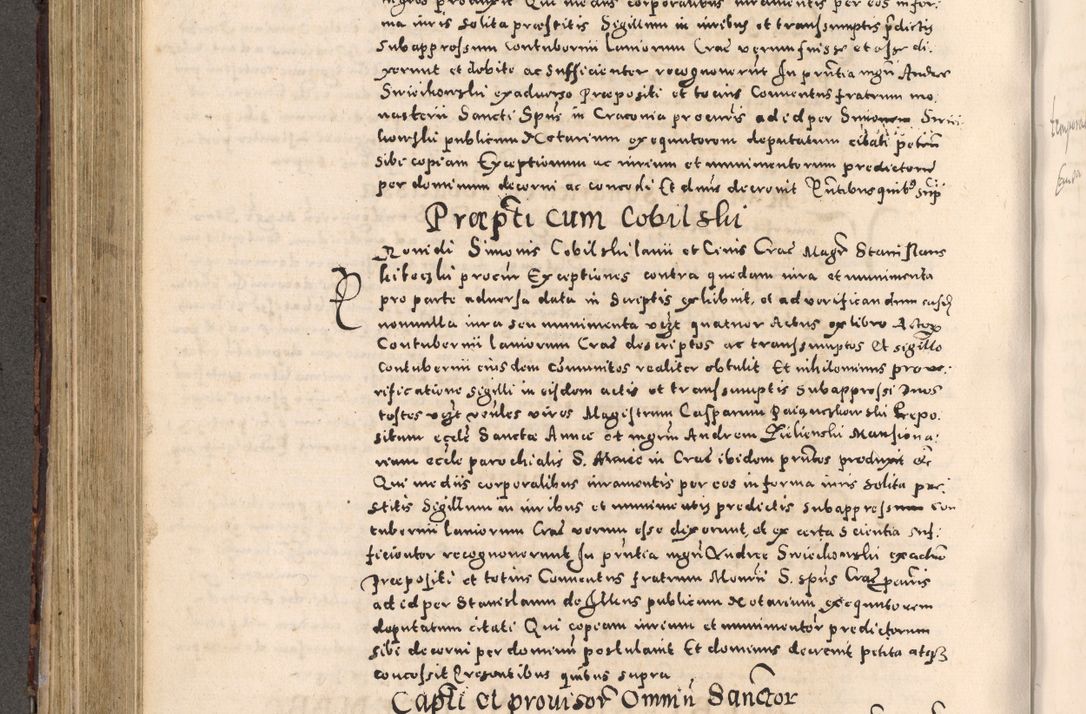 ma iuris solita præstitis Sigillum in iuribus et transsumptis pdictis
Subappressum Contubernii Laniorum Crac verum fuisse et esse di
xerunt et debite ac sufficienter recognoverut In pntia mgri Andree
Swiechowski ex adverso Præpositi et totius Conventus fratrum mo
nasterii Sancti Spus in Cracovia procuris ad id per Simonem
kowski publicum Notarium exequutorem deputatum citati petitu
sibi copiam Exceptionum ac iurium et munimentorum predictoru
per dominum decerni ac concedi Et dnus decrevit Pntibus quib9 sup
Præpti cum Cobilski
Providi Simonis Cobilski lanii et Civis Crac Magr Stanislaus
procur Exceptiones contra quedam iura et munimenta
pro parte adversa data in scriptis exhibuit, et ad verificandum easd
nonnulla iura seu munimenta vzt quatuor Actus ex libro Actor
Contubernii Laniorum Crac descriptos ac transsumptos Et sigillo
Contubernii eiusdem Comunitos realiter obtulit Et nihilominus pro ve
rificatione sigilli in eisdem actis et transsumptis Subappressi duos
testes vzt venles viros Magistrum Casparum Præpo
situm eccle Sanctæ Annæ et mgrum Andream Zielienski Mansiona
rium eccle parochialis S. Mariæ in Crac ibidem pntes produxit etc
Qui mediis corporalibus iuramentis per eos in forma iuris solita præ
stitis Sigillum in iuribus et munimentis predictis subappressum Con
tubernii Laniorum Crac verum esse dixerunt, et ex certa scientia suf
ficienter recognoverunt In pntia mgri Andree Swiechowski ex adverso
Præpositi et totius Conventus fratrum Monrii S. Spus Crac pcuris
ad id per Stanislaum de publicum Notarium exequutorem
deputatum citati Qui copiam iurium et munimentor predictorum
sibi decerni per dominu postulavit Et dominus decrevit petita atq3
concessit Presentibus quibus supra
Capti et provisor Omniu Sanctor